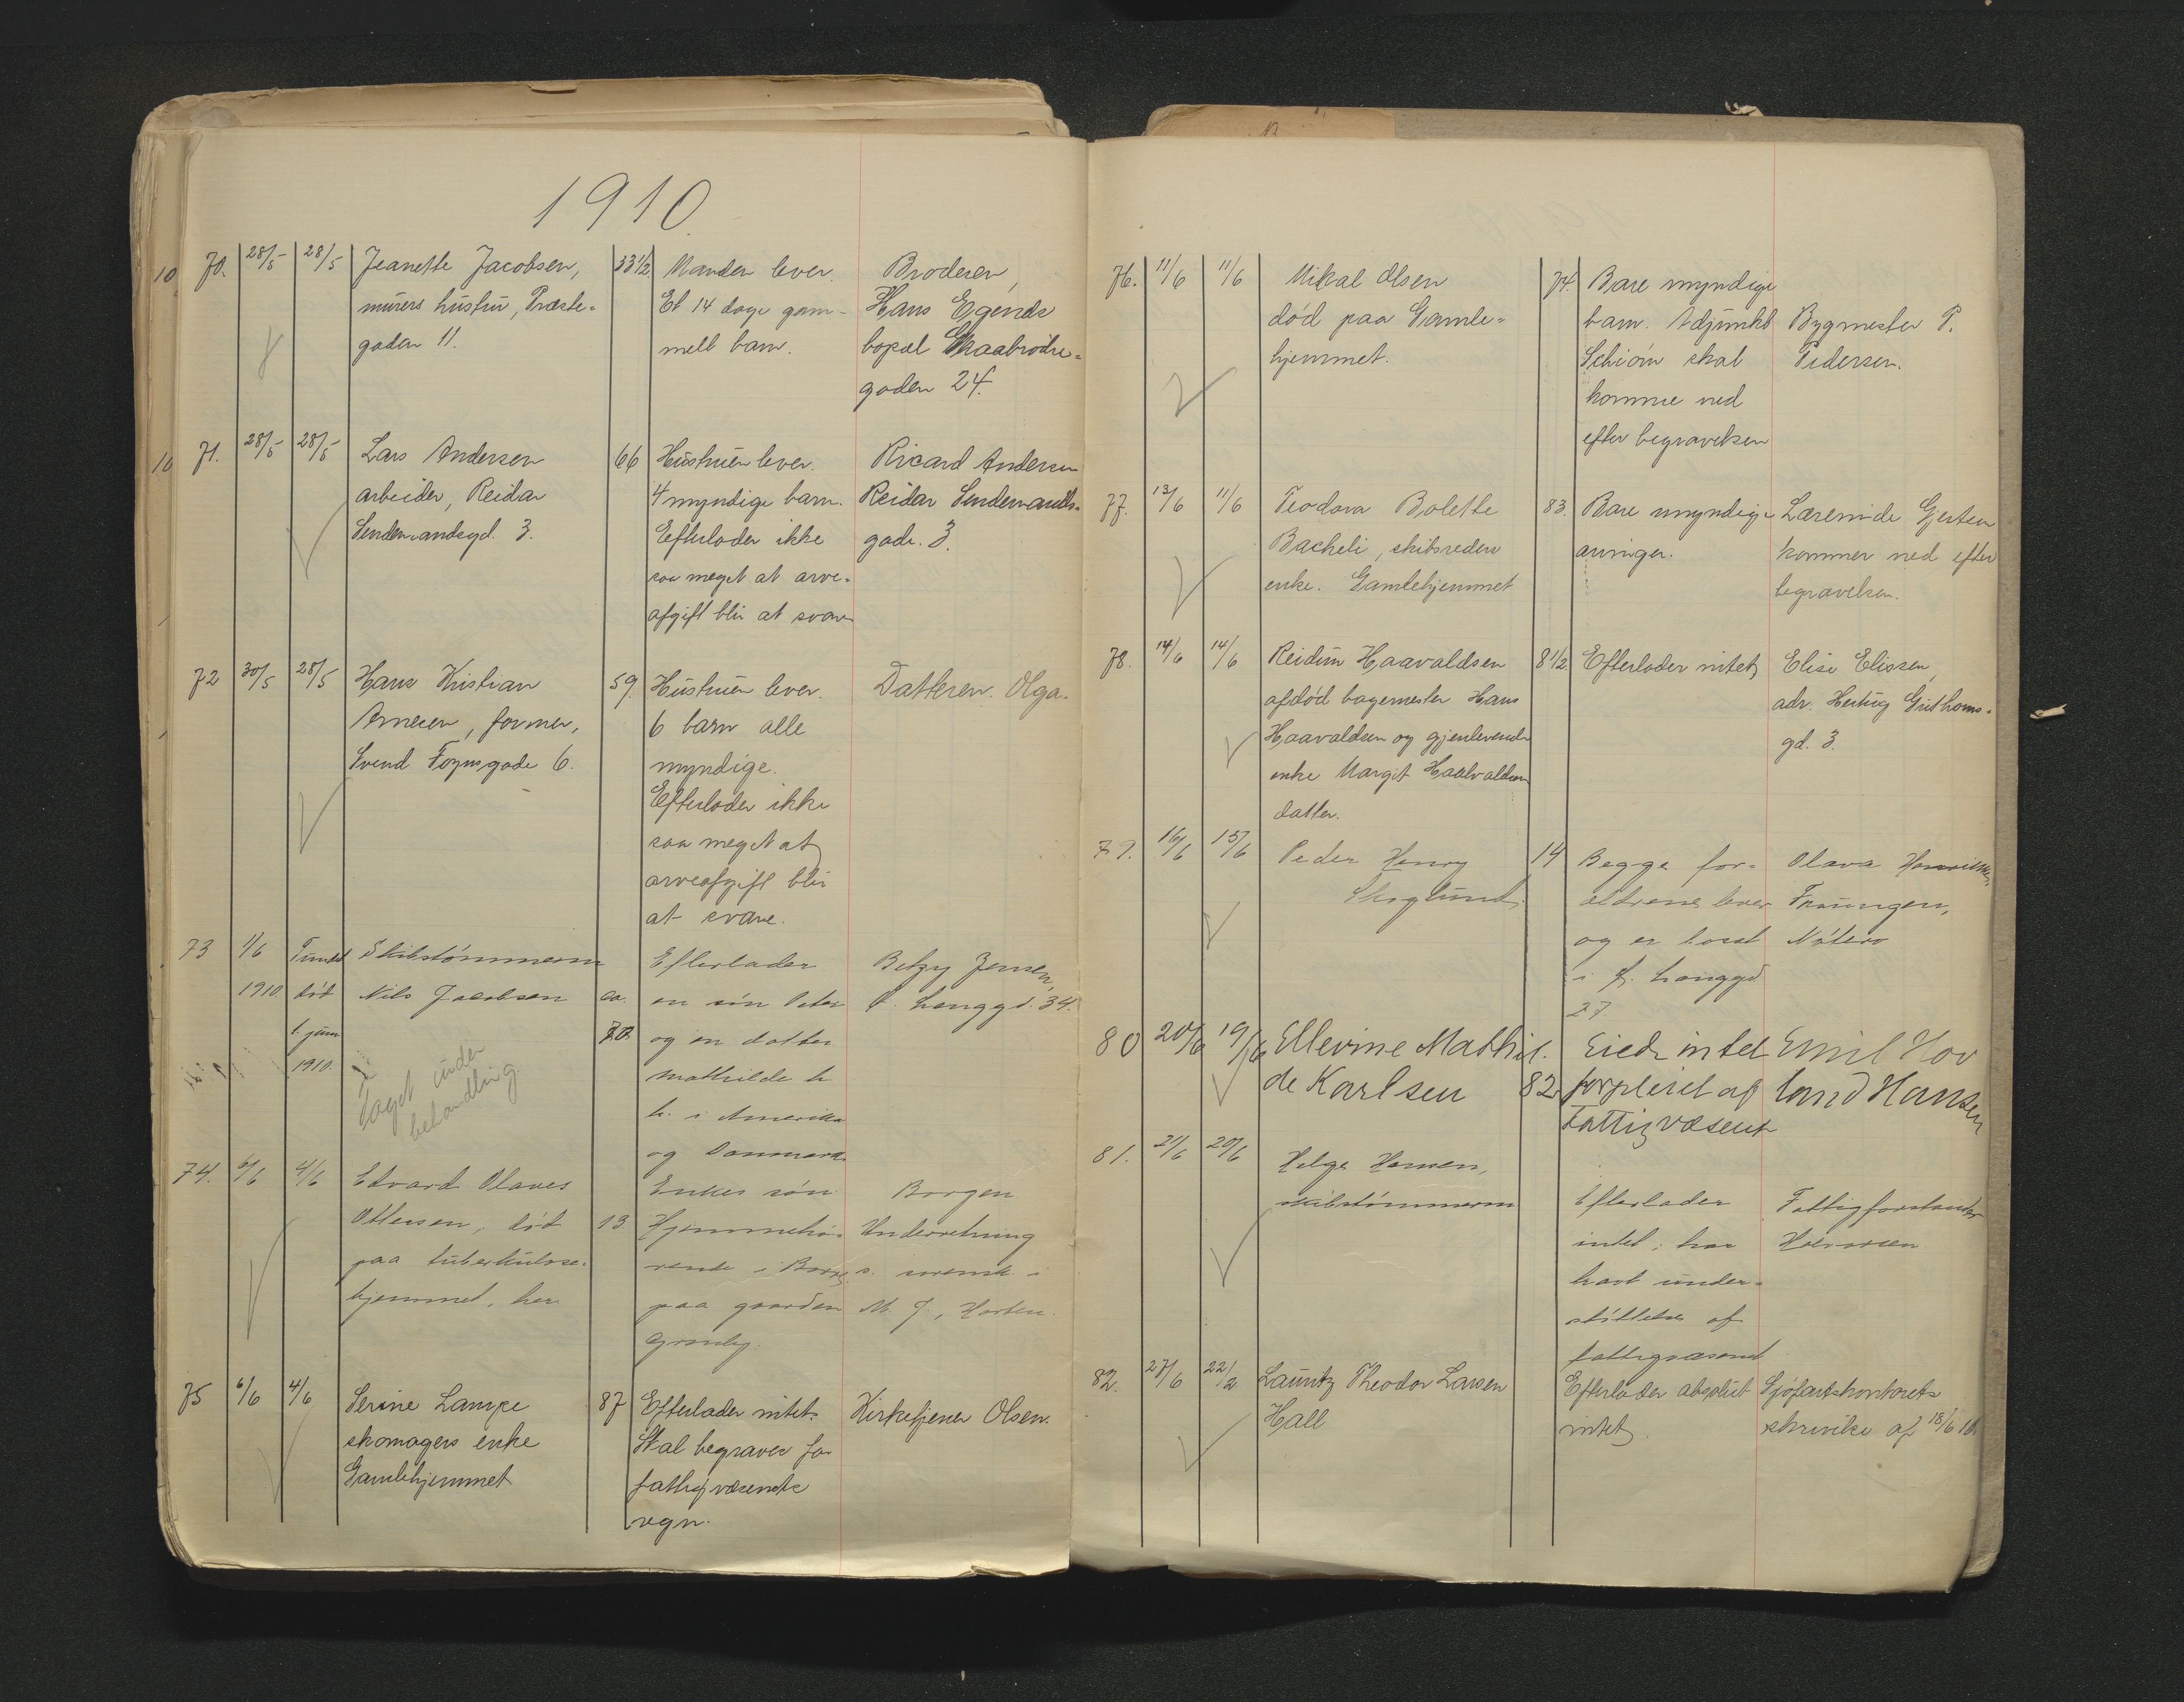 1910.
10 70. 28/5 28/5 Jeanette Jacobsen, 33 1/2 Manden lever. Broderen,
murers hustru, Præste- Et 14 dage gam- Hans Egends
gaden 11. melt barn. bopæl Graabrødre-
gaden 24.
10 71. 28/5 28/5 Lars Andersen 66 Hustruen lever. Ricard Andersen
arbeider, Reidar 4 myndige barn. Reidar Sendemands-
Sendemandsgd. 3. Efterlader ikke gade. 3.
saa meget at arve-
afgift blir at svare
72 30/5 28/5 Hans Kristian 59. Hustruen lever. Datteren Olga.
Arnesen, former, 6 barn alle
Svend Foynsgade 6. myndige.
Efterlader ikke
saa meget at
arveafgift blir
at svare.
73 1/6 Fundet Skibstømmerm Efterlader Betzy Jensen,
1910. død Nils Jacobsen ca. en søn Peter Langgd. 34.
1. juni 70 og en datter
1910. Mathilde
taget under i Amerika
behandling og Danmark
74. 6/6 4/6 Edvard Olaves Enkes søn Borgen
Ottersen, død 13 Hjemmehø- Underretning
paa tuberkulose- rende i Borre s. svensk
hjemmet, her paa gaarden M. J., Horten.
75 6/6 4/6 Serine Lampe 87 Efterlader intet. Kirketjener Olsen.
skomagers enke Skal begraves for
Gamlehjemmet fattigvæsenets
regn.
76. 11/6 11/6 Mikal Olsen 74. Bare myndige
død paa Gamle- barn. Adjunkt Bygmester P.
hjemmet. Schiørn skal Pedersen.
komme ned
efter begravelsen
77. 13/6 11/6 Teodora Bolette 83. Bare myndige Lærerinde Gjertsen
Bacheli, skibsreders arvinger. kommer ned efter
enke. Gamlehjemmet begravelsen.
78. 14/6 14/6 Reidun Haavaldsen 8 1/2 Efterlader intet Elise Elissen,
afdød bagermester Hans adr. Hertug Guthorms-
Haavaldsen og gjenlevende gd. 3.
enke Margit Haavaldsen
datter.
79. 16/6 15/6 Peder Henry 14 Begge for- Olava Henriksen
Skoglund. ældrene lever Træungen,
og er bosat Nøterø
i Langgd
37
80 20/6 19/6 Ellevine Mathil- Eiede intet Emil Hov
de Karlsen 82 forpleiet af land Hansen
Fattigvæsenet
81. 21/6 20/6 Helge Hansen,
skibstømmerm Efterlader Fattigforstander
intet; har Halvorsen
havt under-
støttelse af
fattigvæsenet
82. 27/6 22/2 Lauritz Theodor Larsen Efterlader absolut Sjøfartskontorets
Hall intet. skrivelse af 18/6 10.